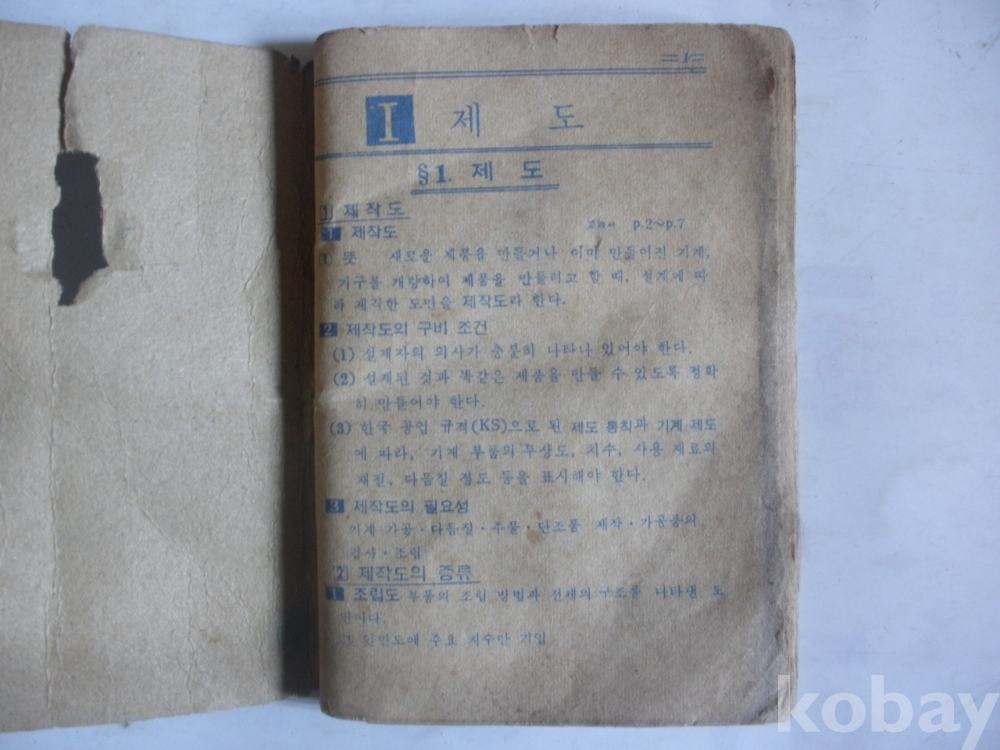 =1=
I 제 도
§1. 제 도
[1] 제작도
1 제작도 교과서 p.2~p.7
(1) 뜻 새로운 제품을 만들거나 이미 만들어진 기계,
기구를 개량하여 제품을 만들려고 할 때, 설계에 따
라 제작한 도면을 제작도라 한다.
2 제작도의 구비 조건
(1) 설계자의 의사가 충분히 나타나 있어야 한다.
(2) 설계된 것과 똑같은 제품을 만들 수 있도록 정확
히 만들어야 한다.
(3) 한국 공업 규격(KS)으로 된 제도 통칙과 기계 제도
에 따라, 기계 부품의 투상도, 치수, 사용 재료의
재질, 다듬질 정도 등을 표시해야 한다.
3 제작도의 필요성
기계 가공·다듬질·주물·단조품 제작·가공품의
검사·조립
[2] 제작도의 종류
1 조립도 부품의 조립 방법과 전체의 구조를 나타낸 도
면이다.
주요 치수만 기입
kobay